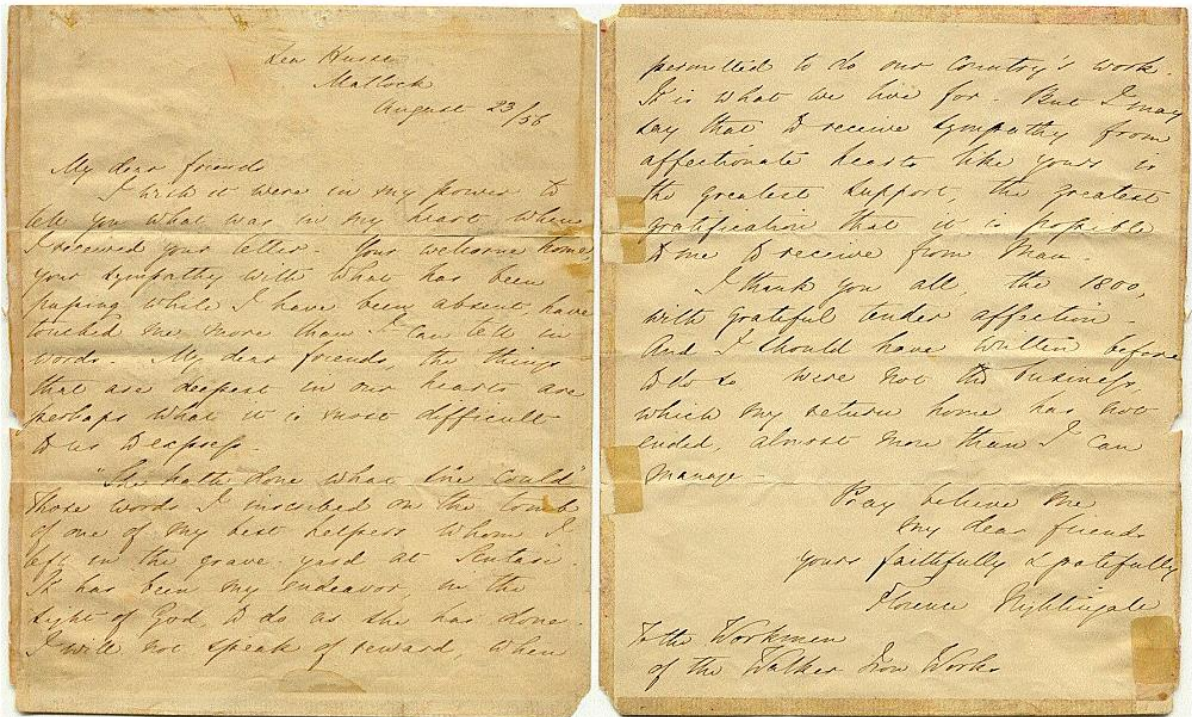 Lea Hurst
Matlock
August 23/56
My dear friends
I wish it were in my power to
tell you what was in my heart when
I received your letter. Your welcome home,
your sympathy with what has been
passing while I have been absent, have
touched me more than I can tell in
words. My dear friends, the things
that are deepest in our hearts are
perhaps what it is most difficult
to us to express.
"She hath done what she could"
those words I inscribed on the tomb
of one of my best helpers whom I
left in the grave-yard at Scutari.
It has been my endeavor, in the
sight of God, to do as she has done.
I will not speak of reward, when
permitted to do our Country's work.
It is what we live for. But I may
say that to receive sympathy from
affectionate hearts like yours is
the greatest support, the greatest
gratification that it is possible
to me to receive from Man.
I thank you all, the 1800,
with grateful tender affection.
And I should have written before
to do so were not the business,
which my return home has not
ended, almost more than I can
manage.
Pray believe me
my dear friends
yours faithfully & gratefully
Florence Nightingale
To the Workmen
of the Walker Iron Works